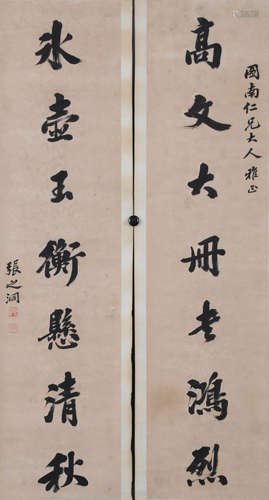 國南仁兄大人雅正
高文大冊書鴻烈
冰壺玉衡懸清秋
張之洞